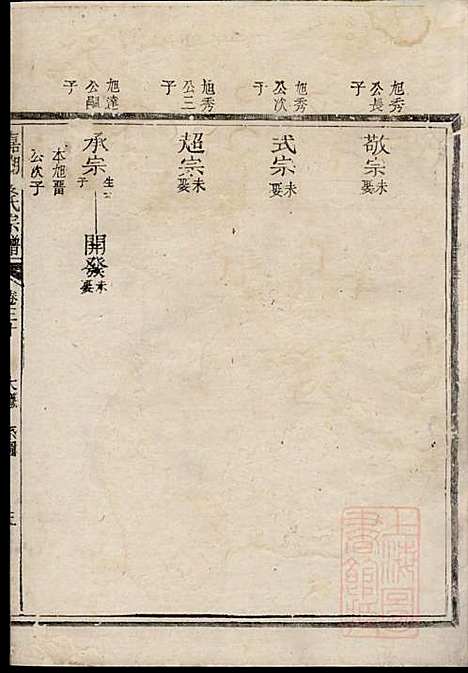 旭秀公長子
敬宗 未娶
旭秀公次子
式宗 未娶
旭秀公三子
超宗 未娶
旭達公嗣子
承宗 生一子
開發 未娶
本旭晋公次子
氏宗譜
卷三十
系圖
上海圖書館藏